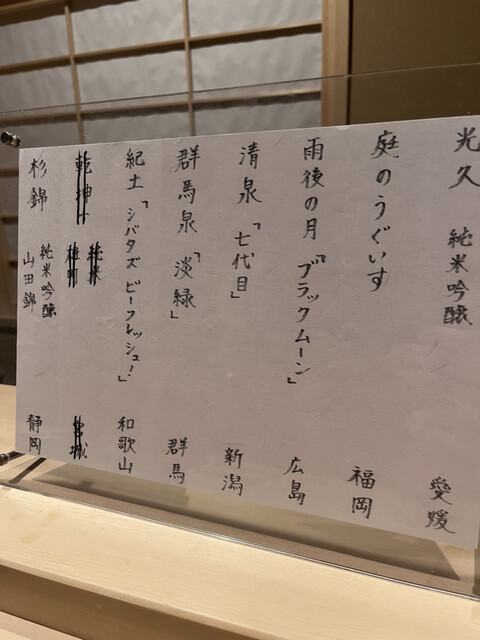 光久 純米吟醸 愛媛
庭のうぐいす 福岡
雨後の月「ブラックムーン」 広島
清泉「七代目」 新潟
群馬泉「淡緑」 群馬
紀土「シバタズ ビーフレッシュ!」 和歌山
乾坤一 純米
杉錦 純米吟醸 山田錦 静岡